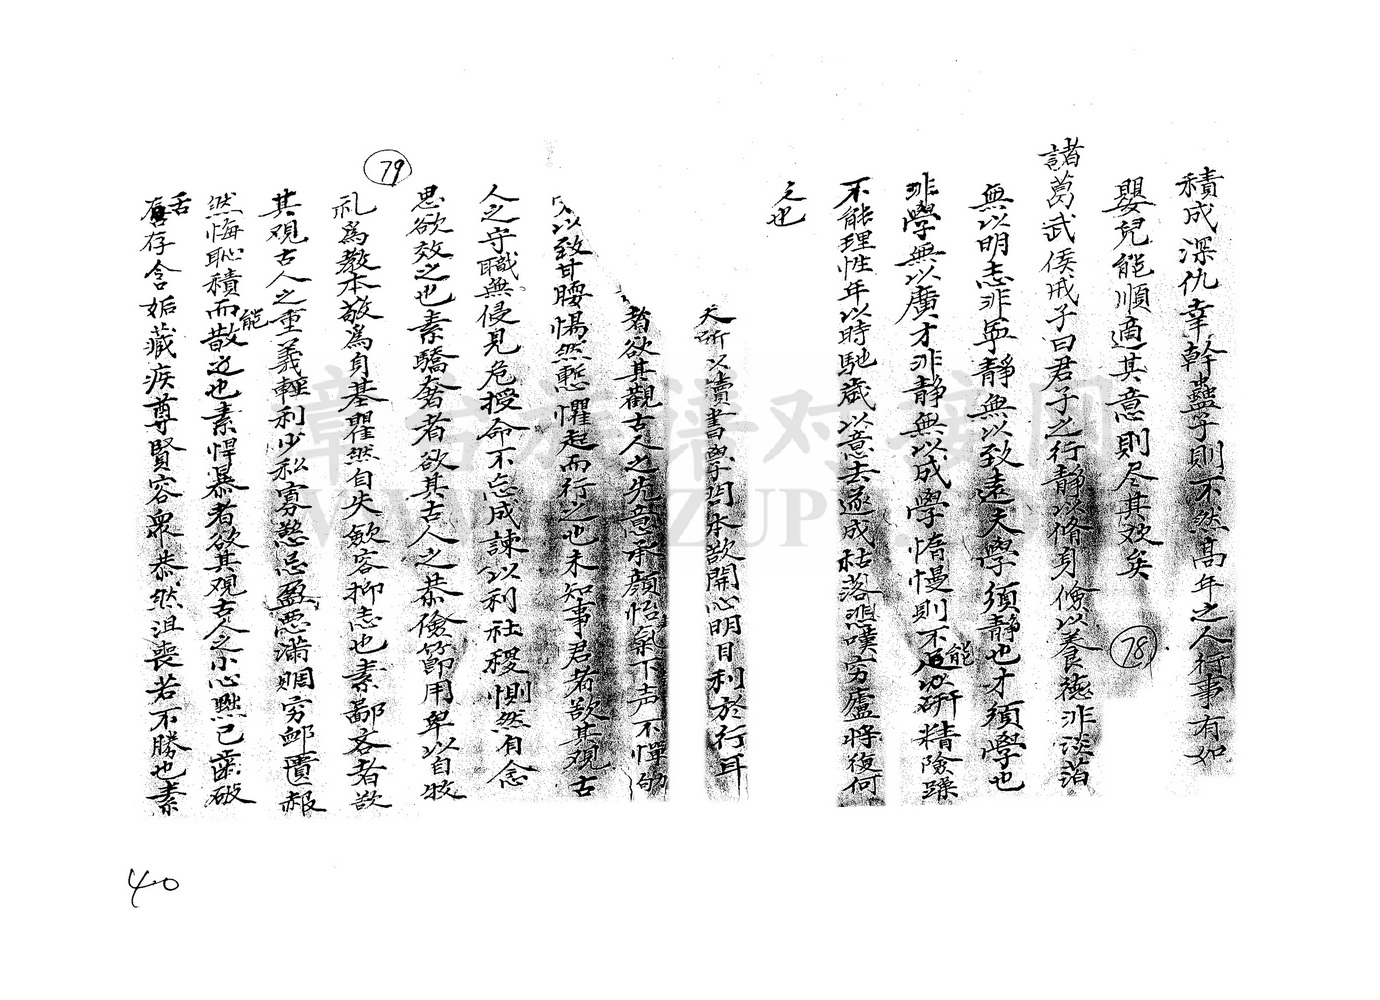 積成深仇幸幹蠱子則不然高年之人行事有如
嬰兒能順適其意則尽其效矣
78
諸葛武侯戒子曰君子之行静以脩身儉以養德非淡泊
無以明志非寧静無以致遠夫學須静也才須學也
非學無以廣才非静無以成學慆慢則不能研精險躁
不能理性年以時馳歲以意去遂成枯落悲嘆穷廬将復何
之也
夫所以讀書學問本欲開心明目利於行耳
者欲其觀古人之先意承顔怡氣下声不憚劬
以致甘腰惕然慙懼起而行之也未知事君者欲其观古
人之守職無侵見危授命不忘成諫以利社稷惻然自念
思欲效之也素驕奢者欲其古人之恭儉節用卑以自牧
79
礼為教本敬為身基瞿然自失歛容抑志也素鄙吝者欲
其观古人之重義輕利少私寡慾忌盈悪满賙穷卹匱赧
然悔恥積而能散之也素悍暴者欲其观古人之小心黜己齒敝
舌存含垢藏疾尊賢容衆恭然沮喪若不勝也素
章台族谱对接网
40